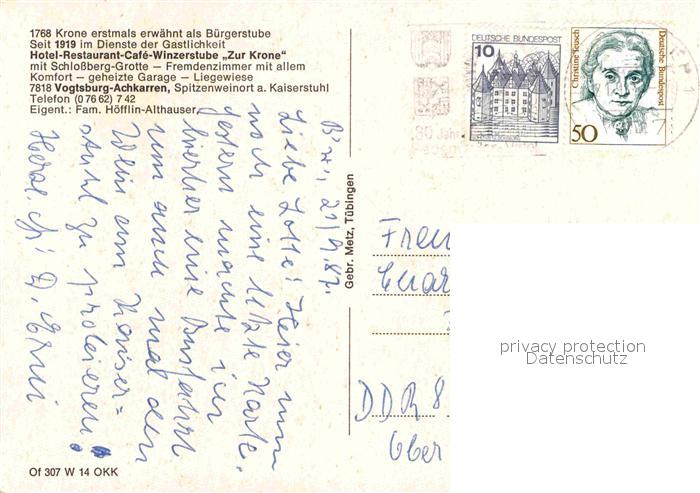 1768 Krone erstmals erwähnt als Bürgerstube
Seit 1919 im Dienste der Gastlichkeit
Hotel-Restaurant-Café-Winzerstube „Zur Krone“
mit Schloßberg-Grotte – Fremdenzimmer mit allem
Komfort – geheizte Garage – Liegewiese
7818 Vogtsburg-Achkarren, Spitzenweinort a. Kaiserstuhl
Telefon (0 76 62) 7 42
Eigent.: Fam. Höfflin-Althauser
DEUTSCHE BUNDESPOST
10
Christine Teusch
Deutsche Bundespost
50
30 Jahre
Liebe Lotte! Hier nun
noch eine letzte Karte.
Gestern machte ich
hierher eine Busfahrt
um auch mal den
Wein am Kaiser=
stuhl zu probieren!
Herzl.
Gebr. Metz, Tübingen
DDR 8
Ober
privacy protection
Datenschutz
Of 307 W 14 OKK